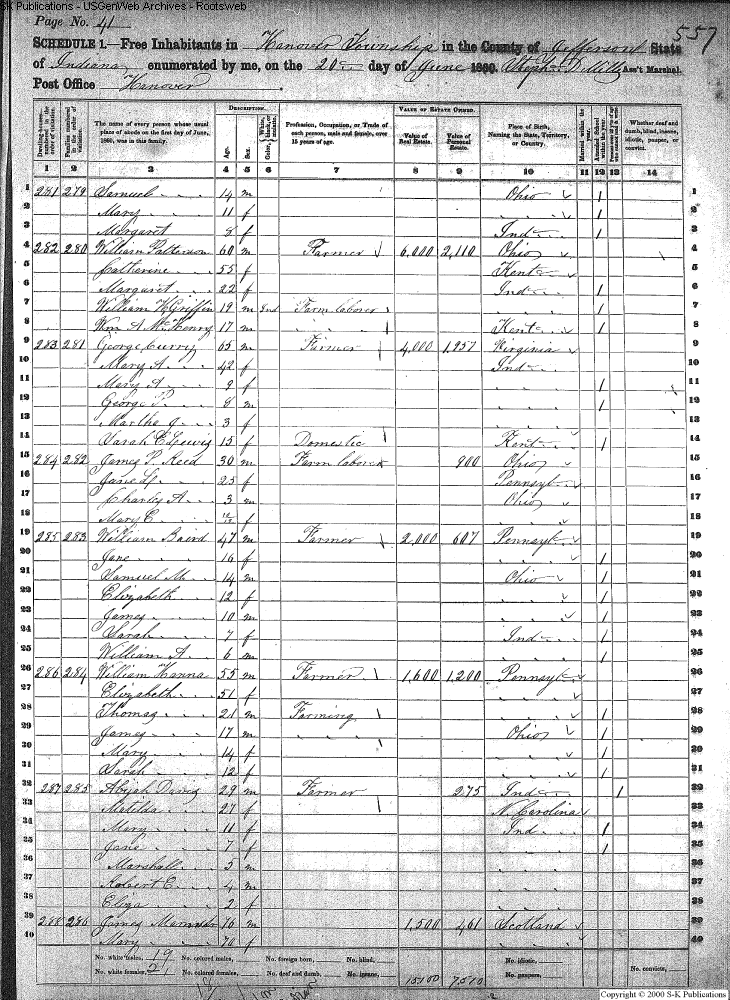 SK Publications - USGenWeb Archives - Rootsweb
Page No. 41
557
SCHEDULE 1.—Free Inhabitants in Hanover Township in the County of Jefferson State
of Indiana enumerated by me, on the 20 day of June 1860. Ass't Marshal.
Post Office Hanover
Dwelling-houses numbered in the order of visitation. Families numbered in the order of visitation. The name of every person whose usual place of abode on the first day of June, 1860, was in this family. DESCRIPTION. Age. Sex. Color, White, black, or mulatto. Profession, Occupation, or Trade of each person, male and female, over 15 years of age. VALUE OF ESTATE OWNED. Value of Real Estate. Value of Personal Estate. Place of Birth, Naming the State, Territory, or Country. Married within the year. Attended School within the year. Whether deaf and dumb, blind, insane, idiotic, pauper, or convict.
1 2 3 4 5 6 7 8 9 10 11 12 13 14
1 281 279 Samuel 14 m Ohio / 1
2 Mary 11 f " / 2
3 Margaret 8 f Ind / 3
4 282 280 William Patterson 60 m Farmer 6,000 2,110 Ohio 4
5 Catharine 55 f Kent 5
6 Margaret 22 f Ind 6
7 William H Griffin 19 m Farm laborer " / 7
8 Wm A McHenry 17 m " Kent / 8
9 283 281 George Curry 65 m Farmer 4,000 1,957 Virginia 9
10 Mary A. 42 f Ind 10
11 Mary A. 9 f " / 11
12 George P. 8 m " / 12
13 Martha J. 3 f " 13
14 Sarah E Lewis 15 f Domestic Kent / 14
15 284 282 James P. Reed 30 m Farm laborer 900 Ohio 15
16 Jane 25 f Pennsyl 16
17 Charley A. 3 m Ohio 17
18 Mary E. f " 18
19 285 283 William Baird 47 m Farmer 2,000 607 Pennsyl 19
20 Jane 16 f " / 20
21 Samuel M. 14 m Ohio / 21
22 Elizabeth 12 f " / 22
23 James 10 m " / 23
24 Sarah 7 f Ind / 24
25 William A. 6 m " / 25
26 286 284 William Hanna 55 m Farmer 1,600 1,200 Pennsyl 26
27 Elizabeth 51 f " 27
28 Thomas 21 m Farming " / 28
29 James 17 m " Ohio / 29
30 Mary 14 f " / 30
31 Sarah 12 f " / 31
32 287 285 Abijah Davis 29 m Farmer 275 Ind / 32
33 Matilda 27 f N. Carolina 33
34 Mary 11 f Ind / 34
35 Jane 7 f " / 35
36 Marshall 5 m " 36
37 Robert C. 4 m " 37
38 Eliza 2 f " 38
39 288 286 James 76 m 1,500 461 Scotland 39
40 Mary 70 f " 40
No. white males, 19 No. colored males, No. foreign born, No. blind, No. idiotic,
No. white females, 21 No. colored females, No. deaf and dumb, No. insane, 15100 7510 No. paupers, No. convicts,
Copyright © 2000 S-K Publications